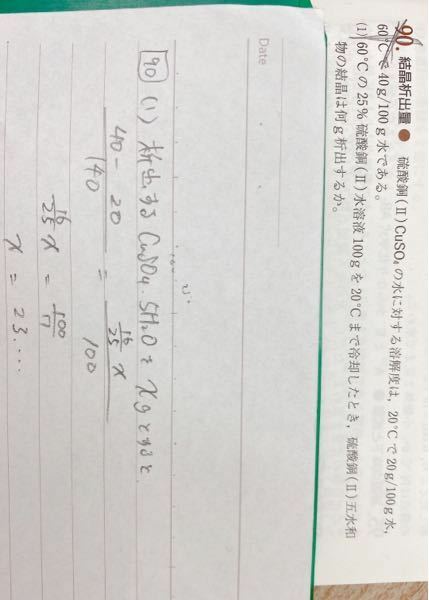 90. 結晶析出量 ● 硫酸銅(Ⅱ)CuSO₄の水に対する溶解度は，20℃で20g/100g水，
60℃で40g/100g水である。
(1) 60℃の25％硫酸銅(Ⅱ)水溶液100gを20℃まで冷却したとき，硫酸銅(Ⅱ)五水和
物の結晶は何g析出するか。
Date
90 (1) 析出する CuSO4・5H2O を xg とすると
40 - 20 / 140 = 16/25 x / 100
16/25 x = 100/7
x = 23....